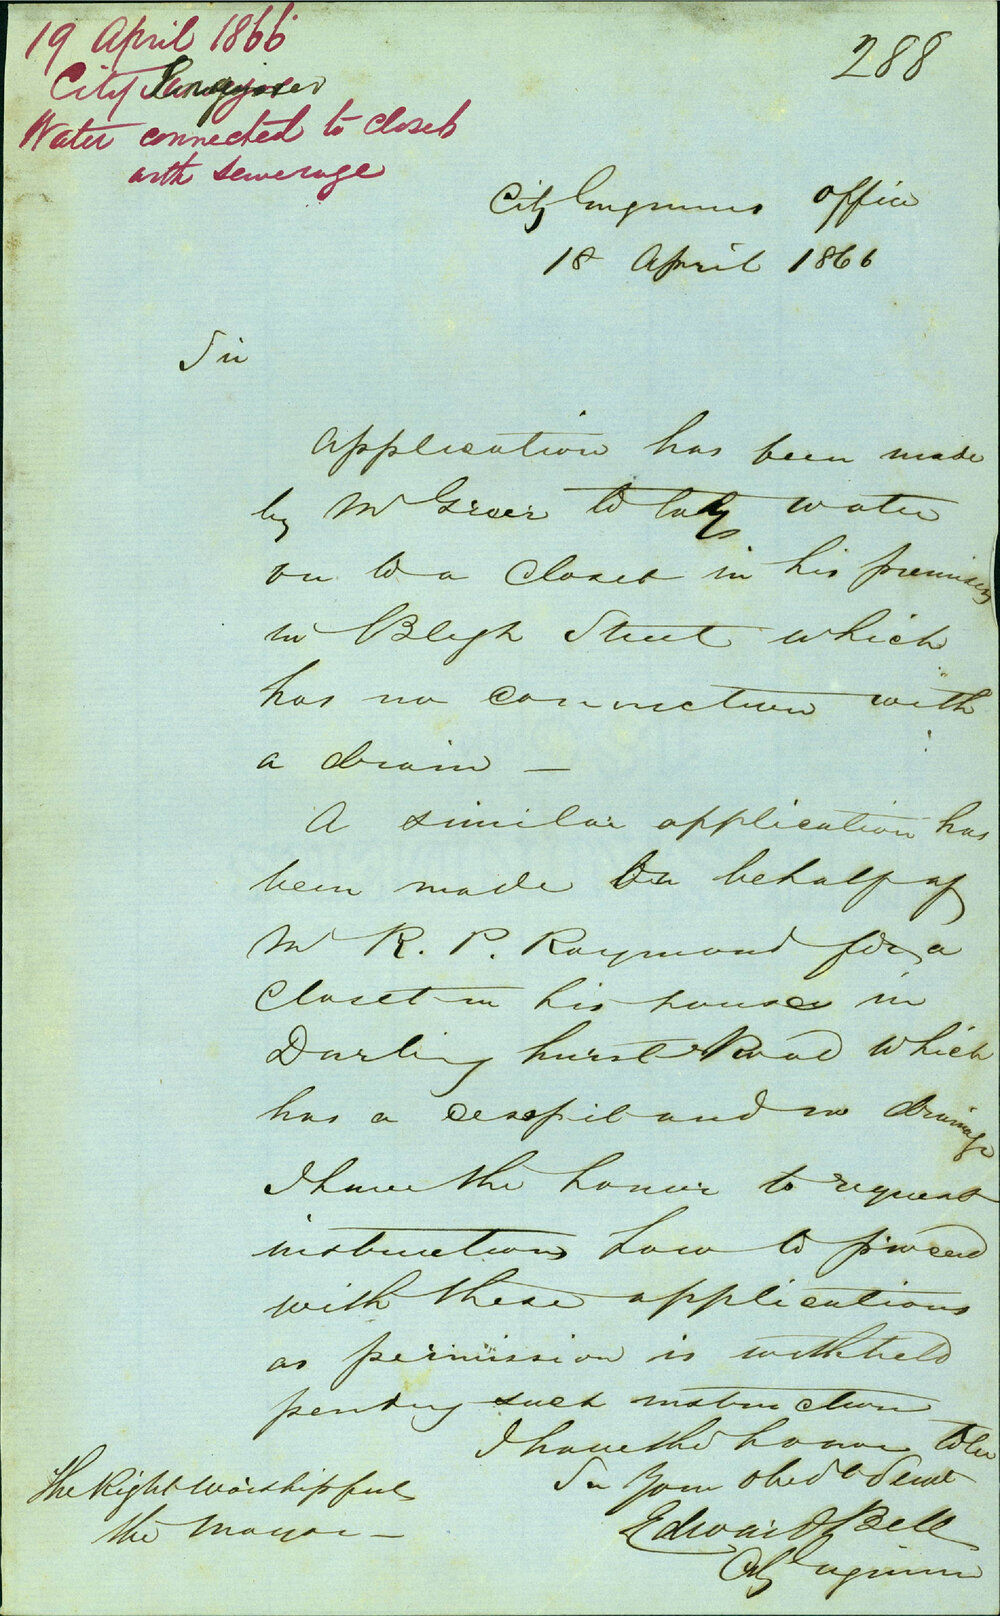 19 April 1866
City Engineer
Water connected to closets
with sewerage
288
City Engineers Office
18 April 1866
Sir
Application has been made
by Mr Greer to lay water
on to a Closet in his premises
in Bligh Street which
has no connection with
a drain —
A similar application has
been made on behalf of
Mr R. P. Raymond for a
Closet in his house in
Darlinghurst Road which
has a cesspit and no drainage
I have the honor to request
instructions how to proceed
with these applications
as permission is withheld
pending such instruction
I have the honor to be
Sir Your obedt Servt
Edward Bell
City Engineer
The Right Worshipful
the Mayor —